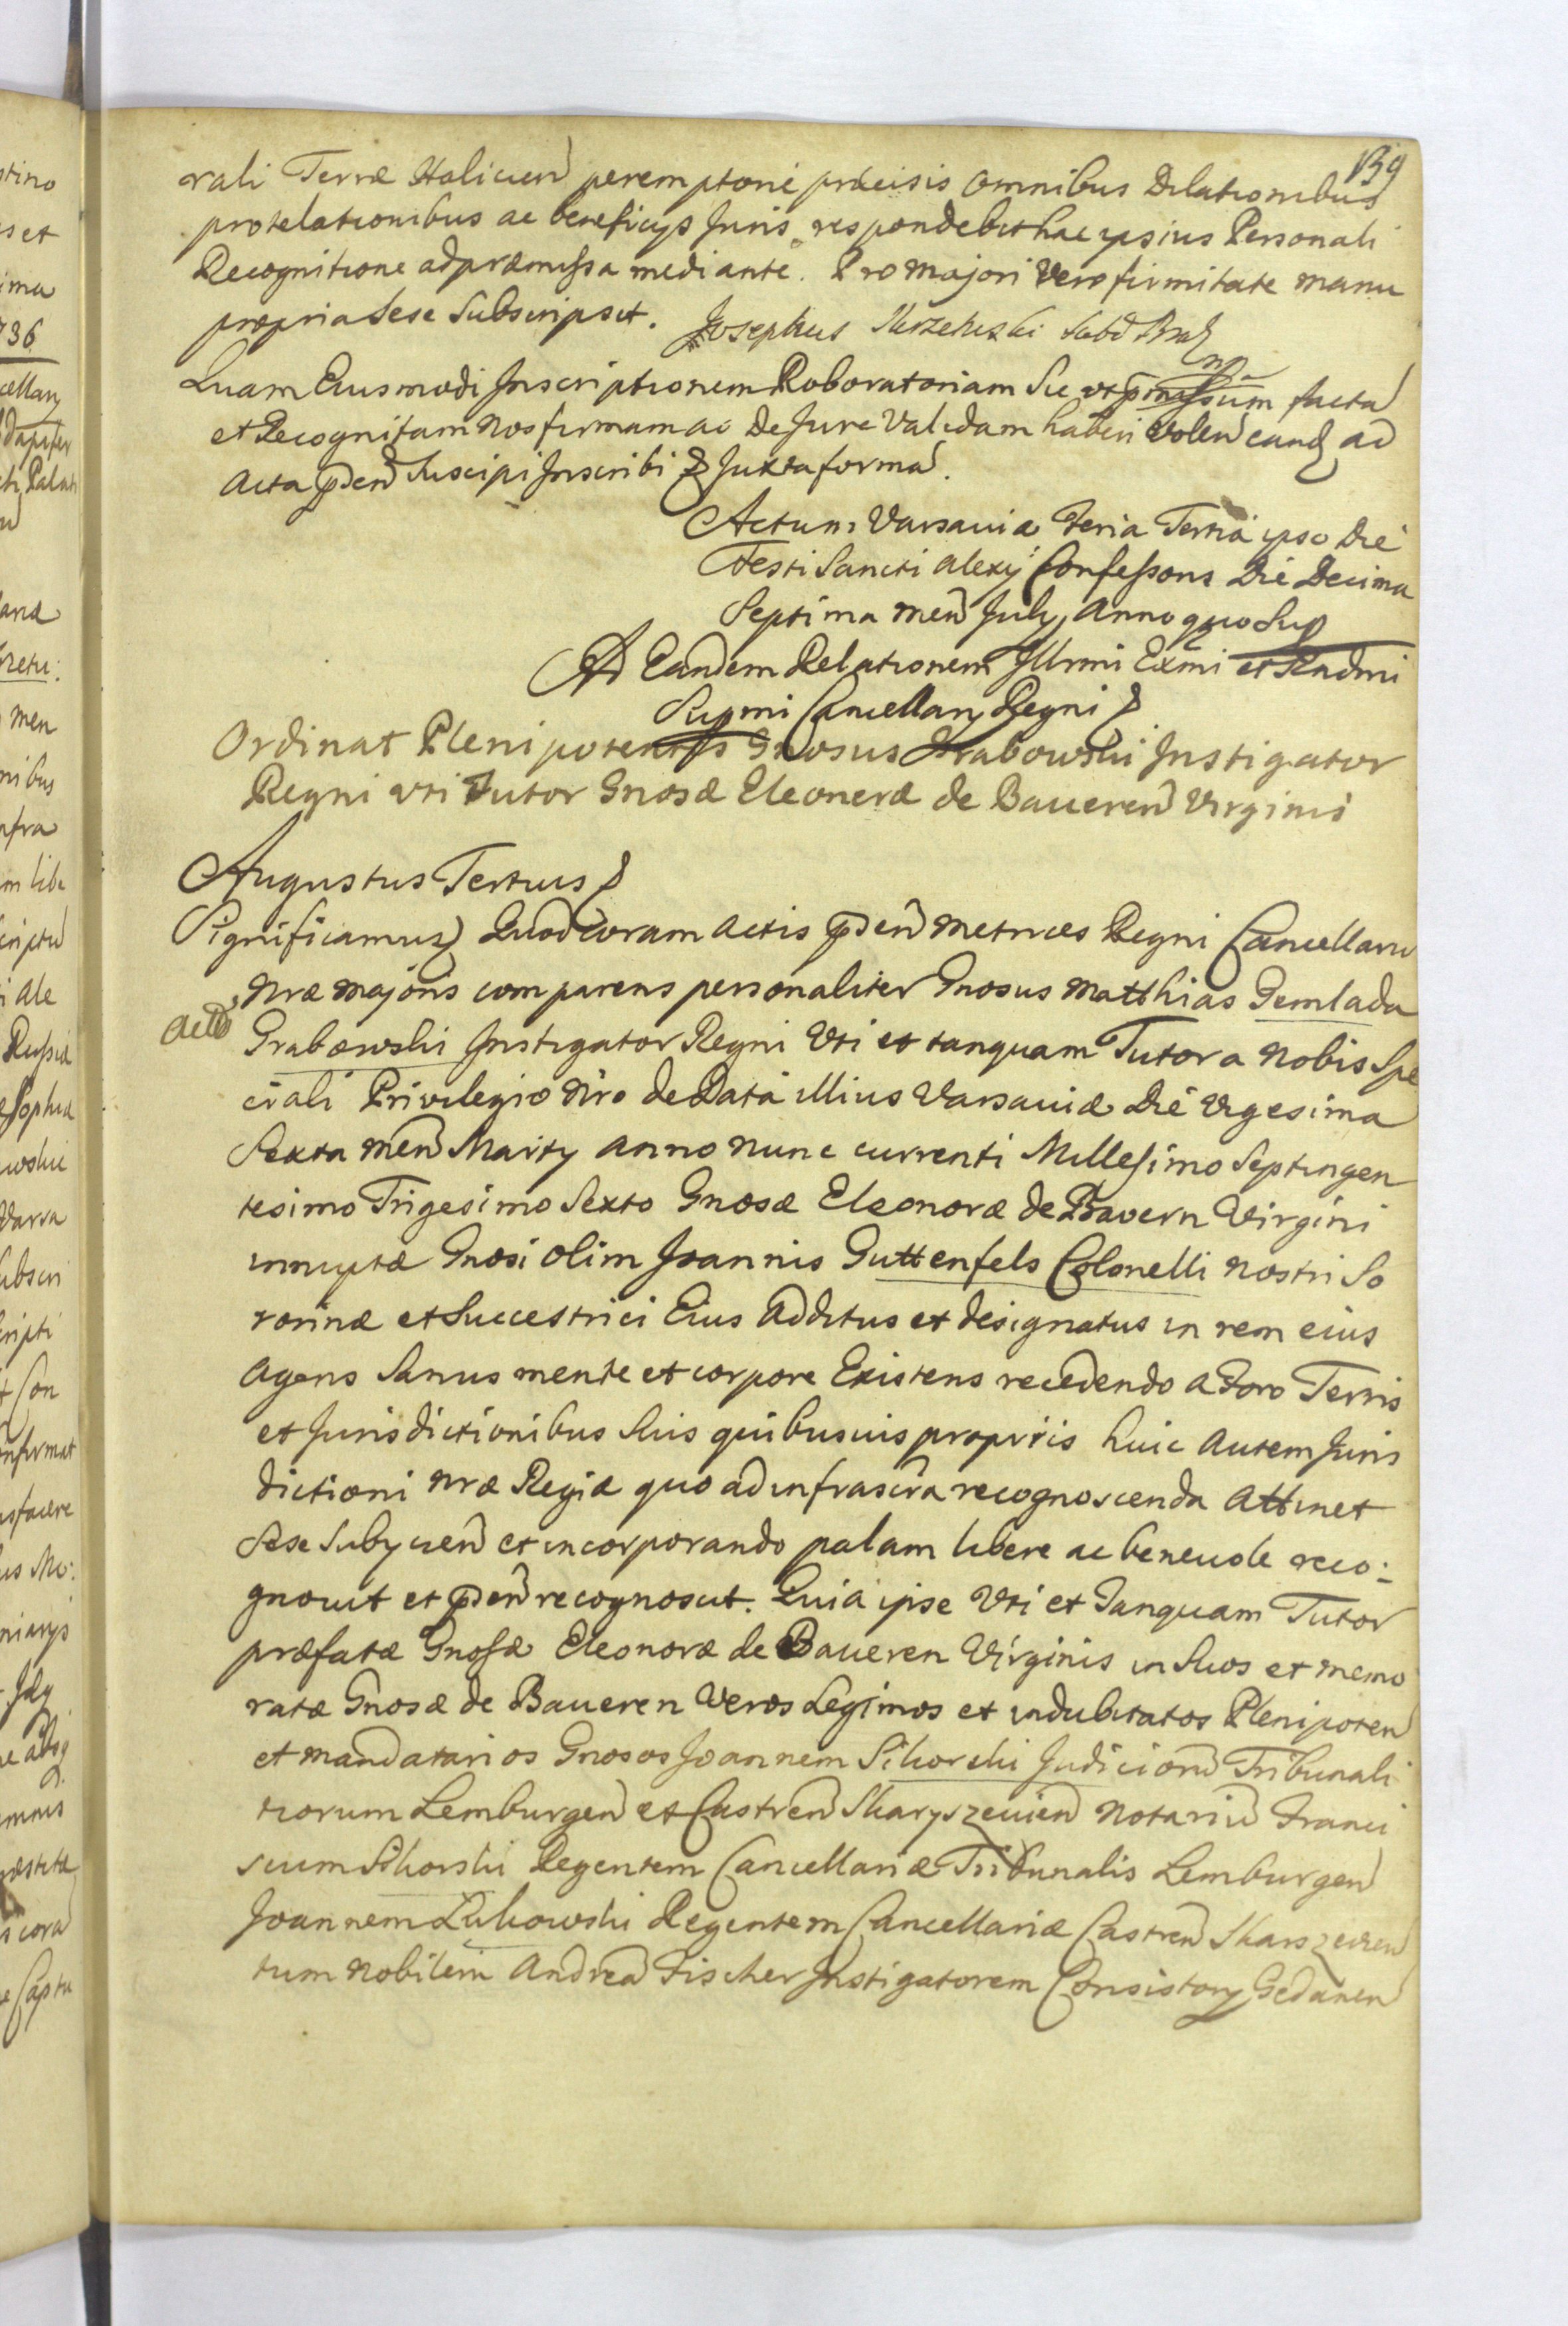 139
rali Terræ Halicien peremptorie præcisis omnibus Dilationibus
protelationibus ac beneficijs Juris respondebit hac ipsius Personali
Recognitione ad præmissa mediante. Pro majori Vero firmitate manu
propria sese Subscripsit. Josephus Skrzetuski Subd Bra
mp
Quam Eiusmodi Inscriptionem Roboratoriam Sic ut præmissum facta
et Recognitam Nos firmam ac De Jure Validam haberi Volen eand ad
Acta pden Suscipi Inscribi & Juxta forma.
Actum Varsaviæ Feria Tertia ipso Die
Festi Sancti Alexij Confessoris Die Decima
Septima men July, Anno quo Sup
Ad Eandem Relationem Illrmi Exmi et Rndmi
Supmi Cancellarij Regni &
Ordinat Plenipotentes Gnosus Grabowski Instigator
Regni uti Tutor Gnosæ Eleoneræ de Baueren Virginis
Augustus Tertius &
Significamus) Quod Coram Actis pden Metrices Regni Cancellariæ
Nræ majoris comparens personaliter Gnosus Matthias Gemlada
Grabowski Instigator Regni Uti et tanquam Tutor a Nobis Spe
ciali Privilegio Nro de Data illius Varsaviæ Die Vigesima
Sexta men Martij Anno nunc currenti Millesimo Septingen
tesimo Trigesimo Sexto Gnosæ Eleonoræ de Bavern Virgini
innuptæ Gnosi olim Joannis Guttenfels Colonelli nostri So
rorinæ et Succestrici Eius Additus et designatus in rem eius
Agens Sanus mente et corpore Existens recedendo a Foro Terris
et Jurisdictionibus Suis quibusuis proprijs huic Autem Juris
dictioni Nræ Regiæ quo ad infrascra recognoscenda Attinet
Sese Subijcien et incorporando palam libere ac beneuole reco:
gnouit et pden recognoscit. Quia ipse Uti et Tanquam Tutor
præfatæ Gnosæ Eleonoræ de Baueren Virginis in Suos et memo
ratæ Gnosæ de Baueren Veros Legimos et indubitatos Plenipoten
et mandatarios Gnosos Joannem Sikorski Judicioru Tribunali
tiorum Lemburgen et Castren Skaryszeuien Notariu Franci
scum Sikorski Regentem Cancellariæ Tribunalis Lemburgen
Joannem Lukowski Regentem Cancellariæ Castren Skarszeuien
tum Nobilem Andrea Fischer Instigatorem Consistory Gedanen